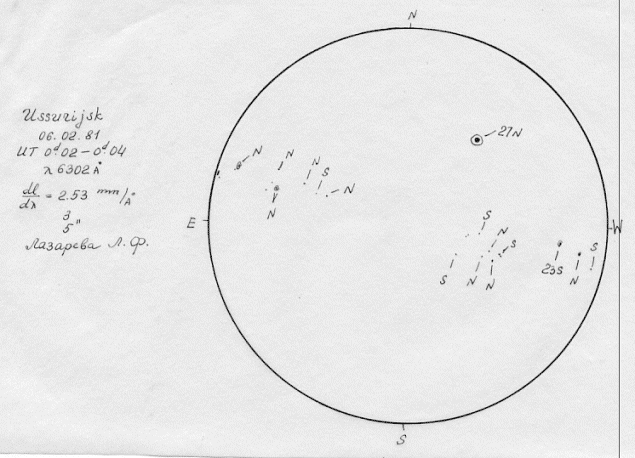 Ussurijsk
06.02.81
UT 0ᵈ02 – 0ᵈ04
λ 6302 Å
dl/dλ = 2.53 mm/Å
3
5"
Лазарева Л. Ф.
N
27N
N
N
N
S
N
N
E
W
S
N
S
S
N
N
23S
S
N
S